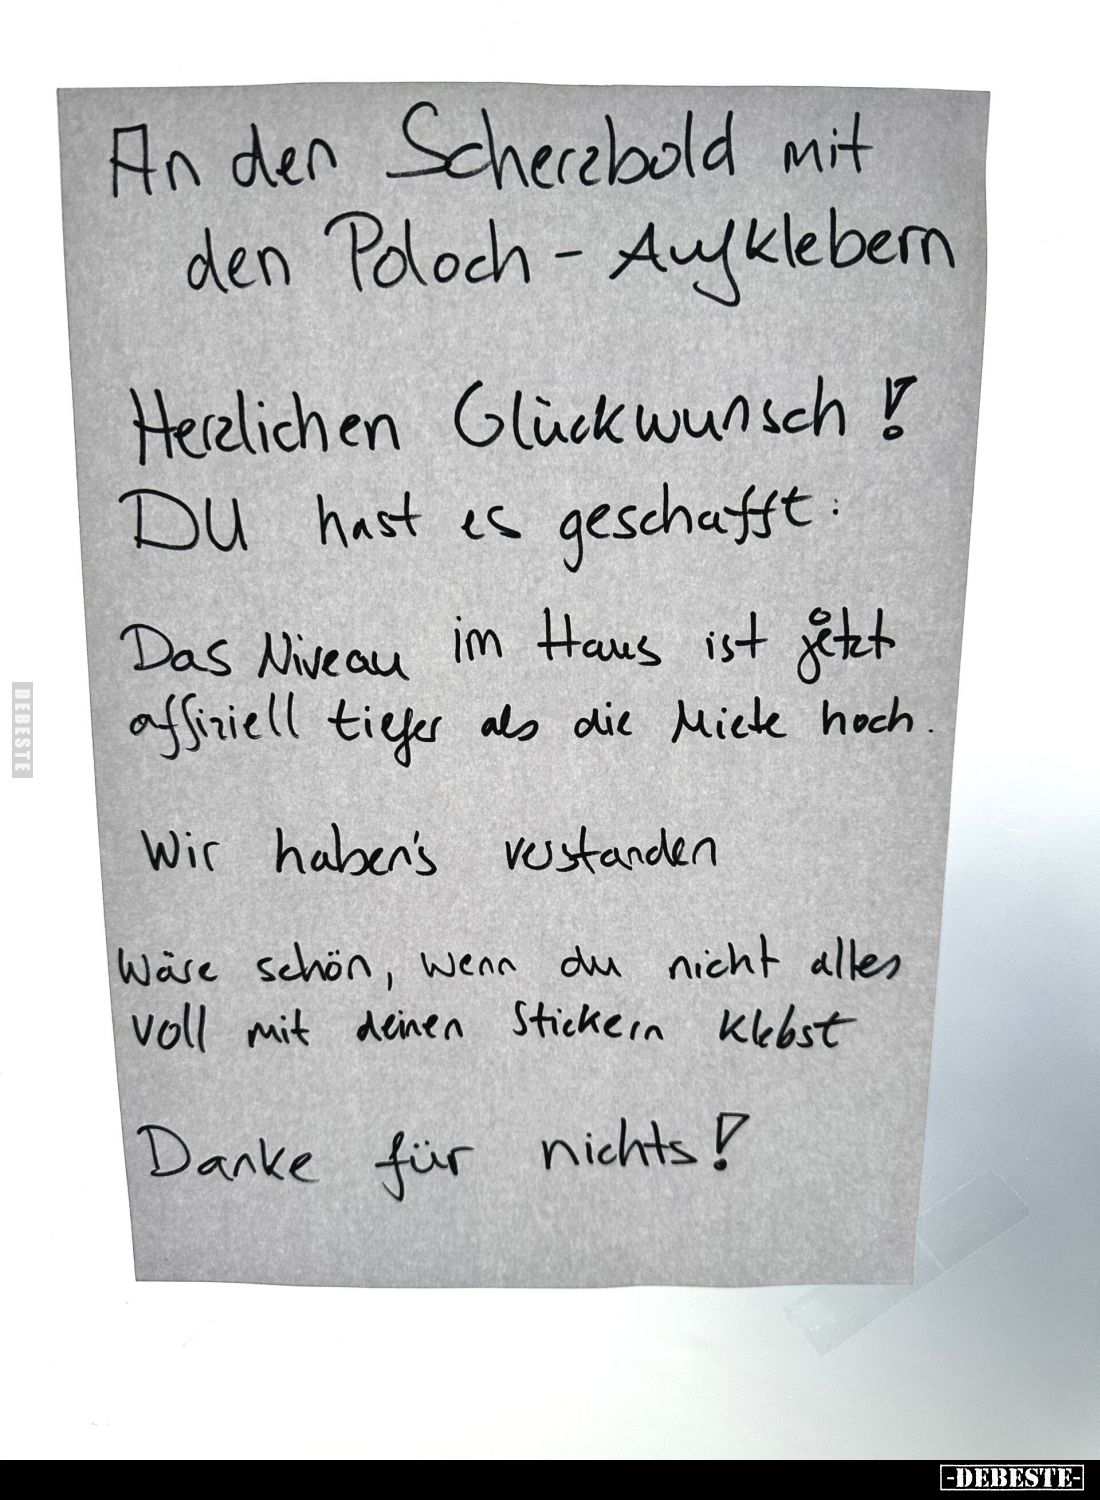 An den Scherzbold mit
den Poloch - Aufklebern
Herzlichen Glückwunsch!
DU hast es geschafft:
Das Niveau im Haus ist jetzt
offiziell tiefer als die Miete hoch.
Wir haben's verstanden
Wäre schön, wenn du nicht alles
voll mit deinen Stickern klebst
Danke für nichts!
DEBESTE
-DEBESTE-